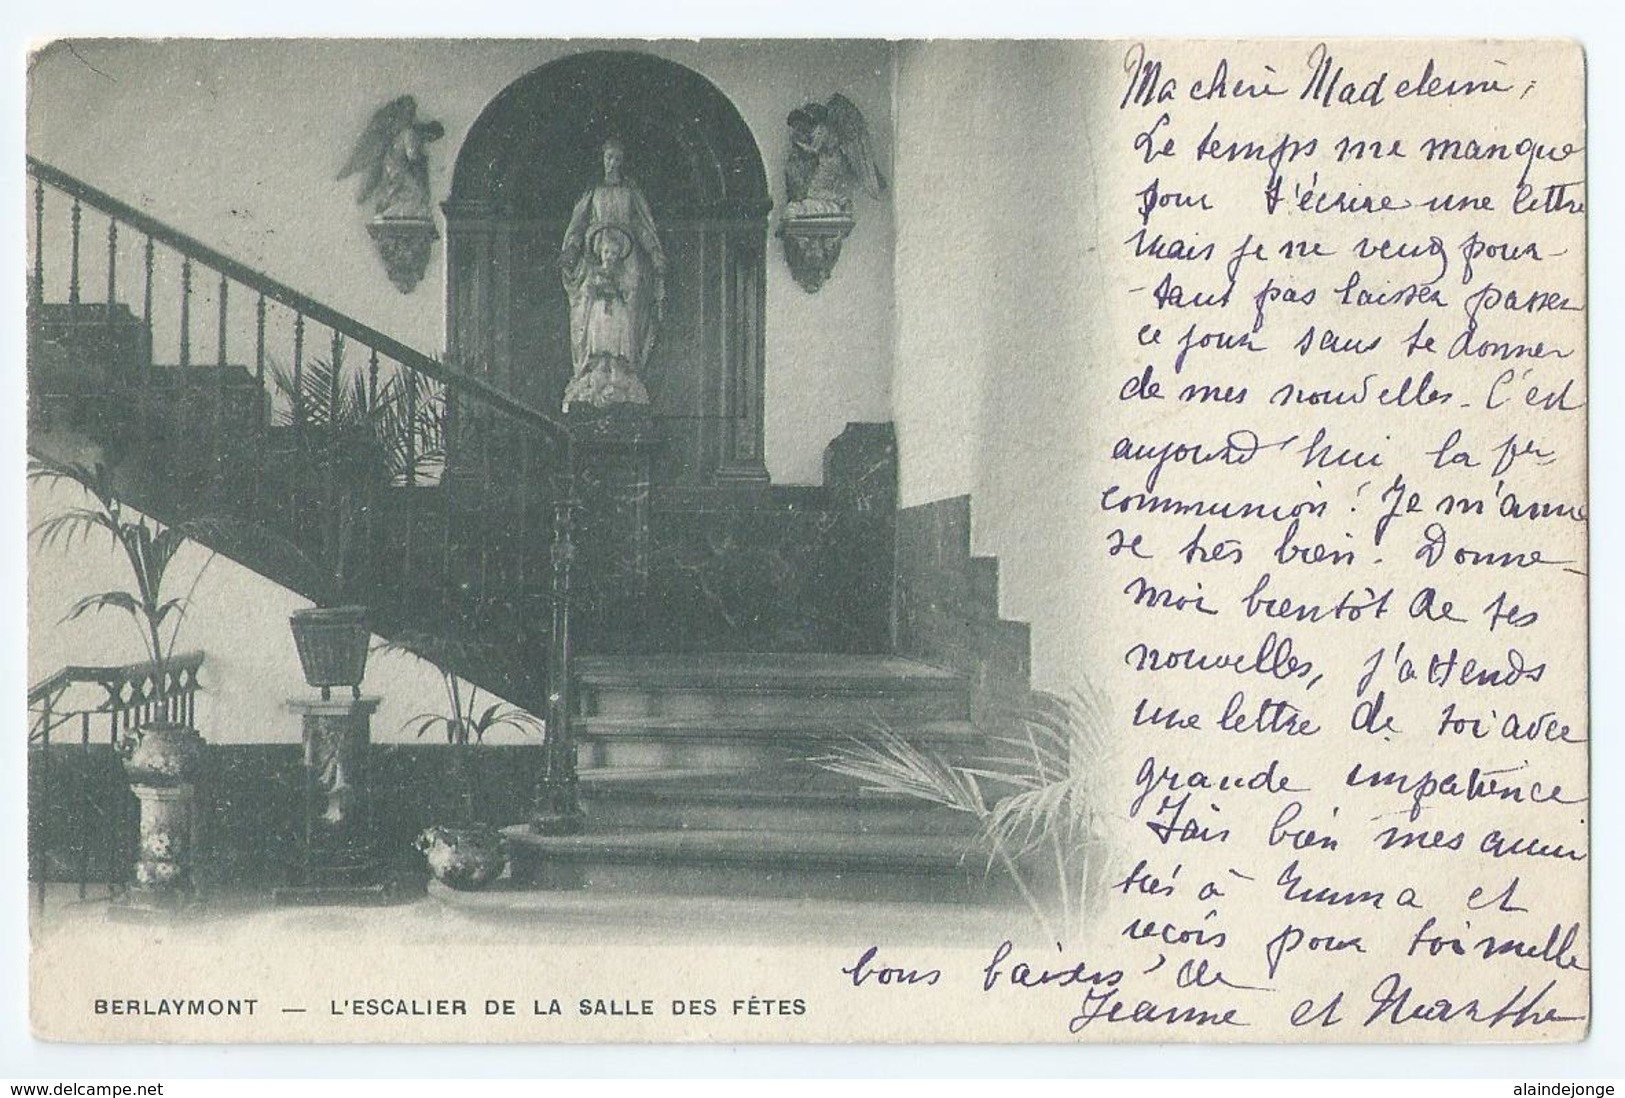 Ma chère Madeleine,
Le temps me manque
pour t'écrire une lettre
mais je ne veux pour-
-tant pas laisser passer
ce jour sans te donner
de mes nouvelles. C'est
aujourd'hui la 1re
communion! Je m'amu
se très bien. Donne-
moi bientôt de tes
nouvelles, j'attends
une lettre de toi avec
grande impatience
Fais bien mes amiti
tiés à Emma et
reçois pour toi mille
bons baisers de
Jeanne et Marthe
BERLAYMONT — L'ESCALIER DE LA SALLE DES FÊTES
www.delcampe.net
alaindejonge